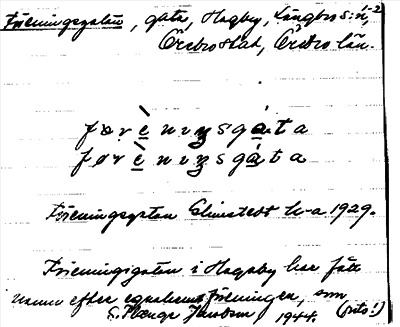 Föreningsgatan, gata, Hagby, Längbro s:n, 1-2
Örebro stad, Örebro län.
førènıŋsgáta
førènıŋsgáta
Föreningsgatan Elmstedt U-a 1929.
Föreningsgatan i Hagaby har fått
namn efter egnahemsföreningen, som
S. 1944. (rits!)